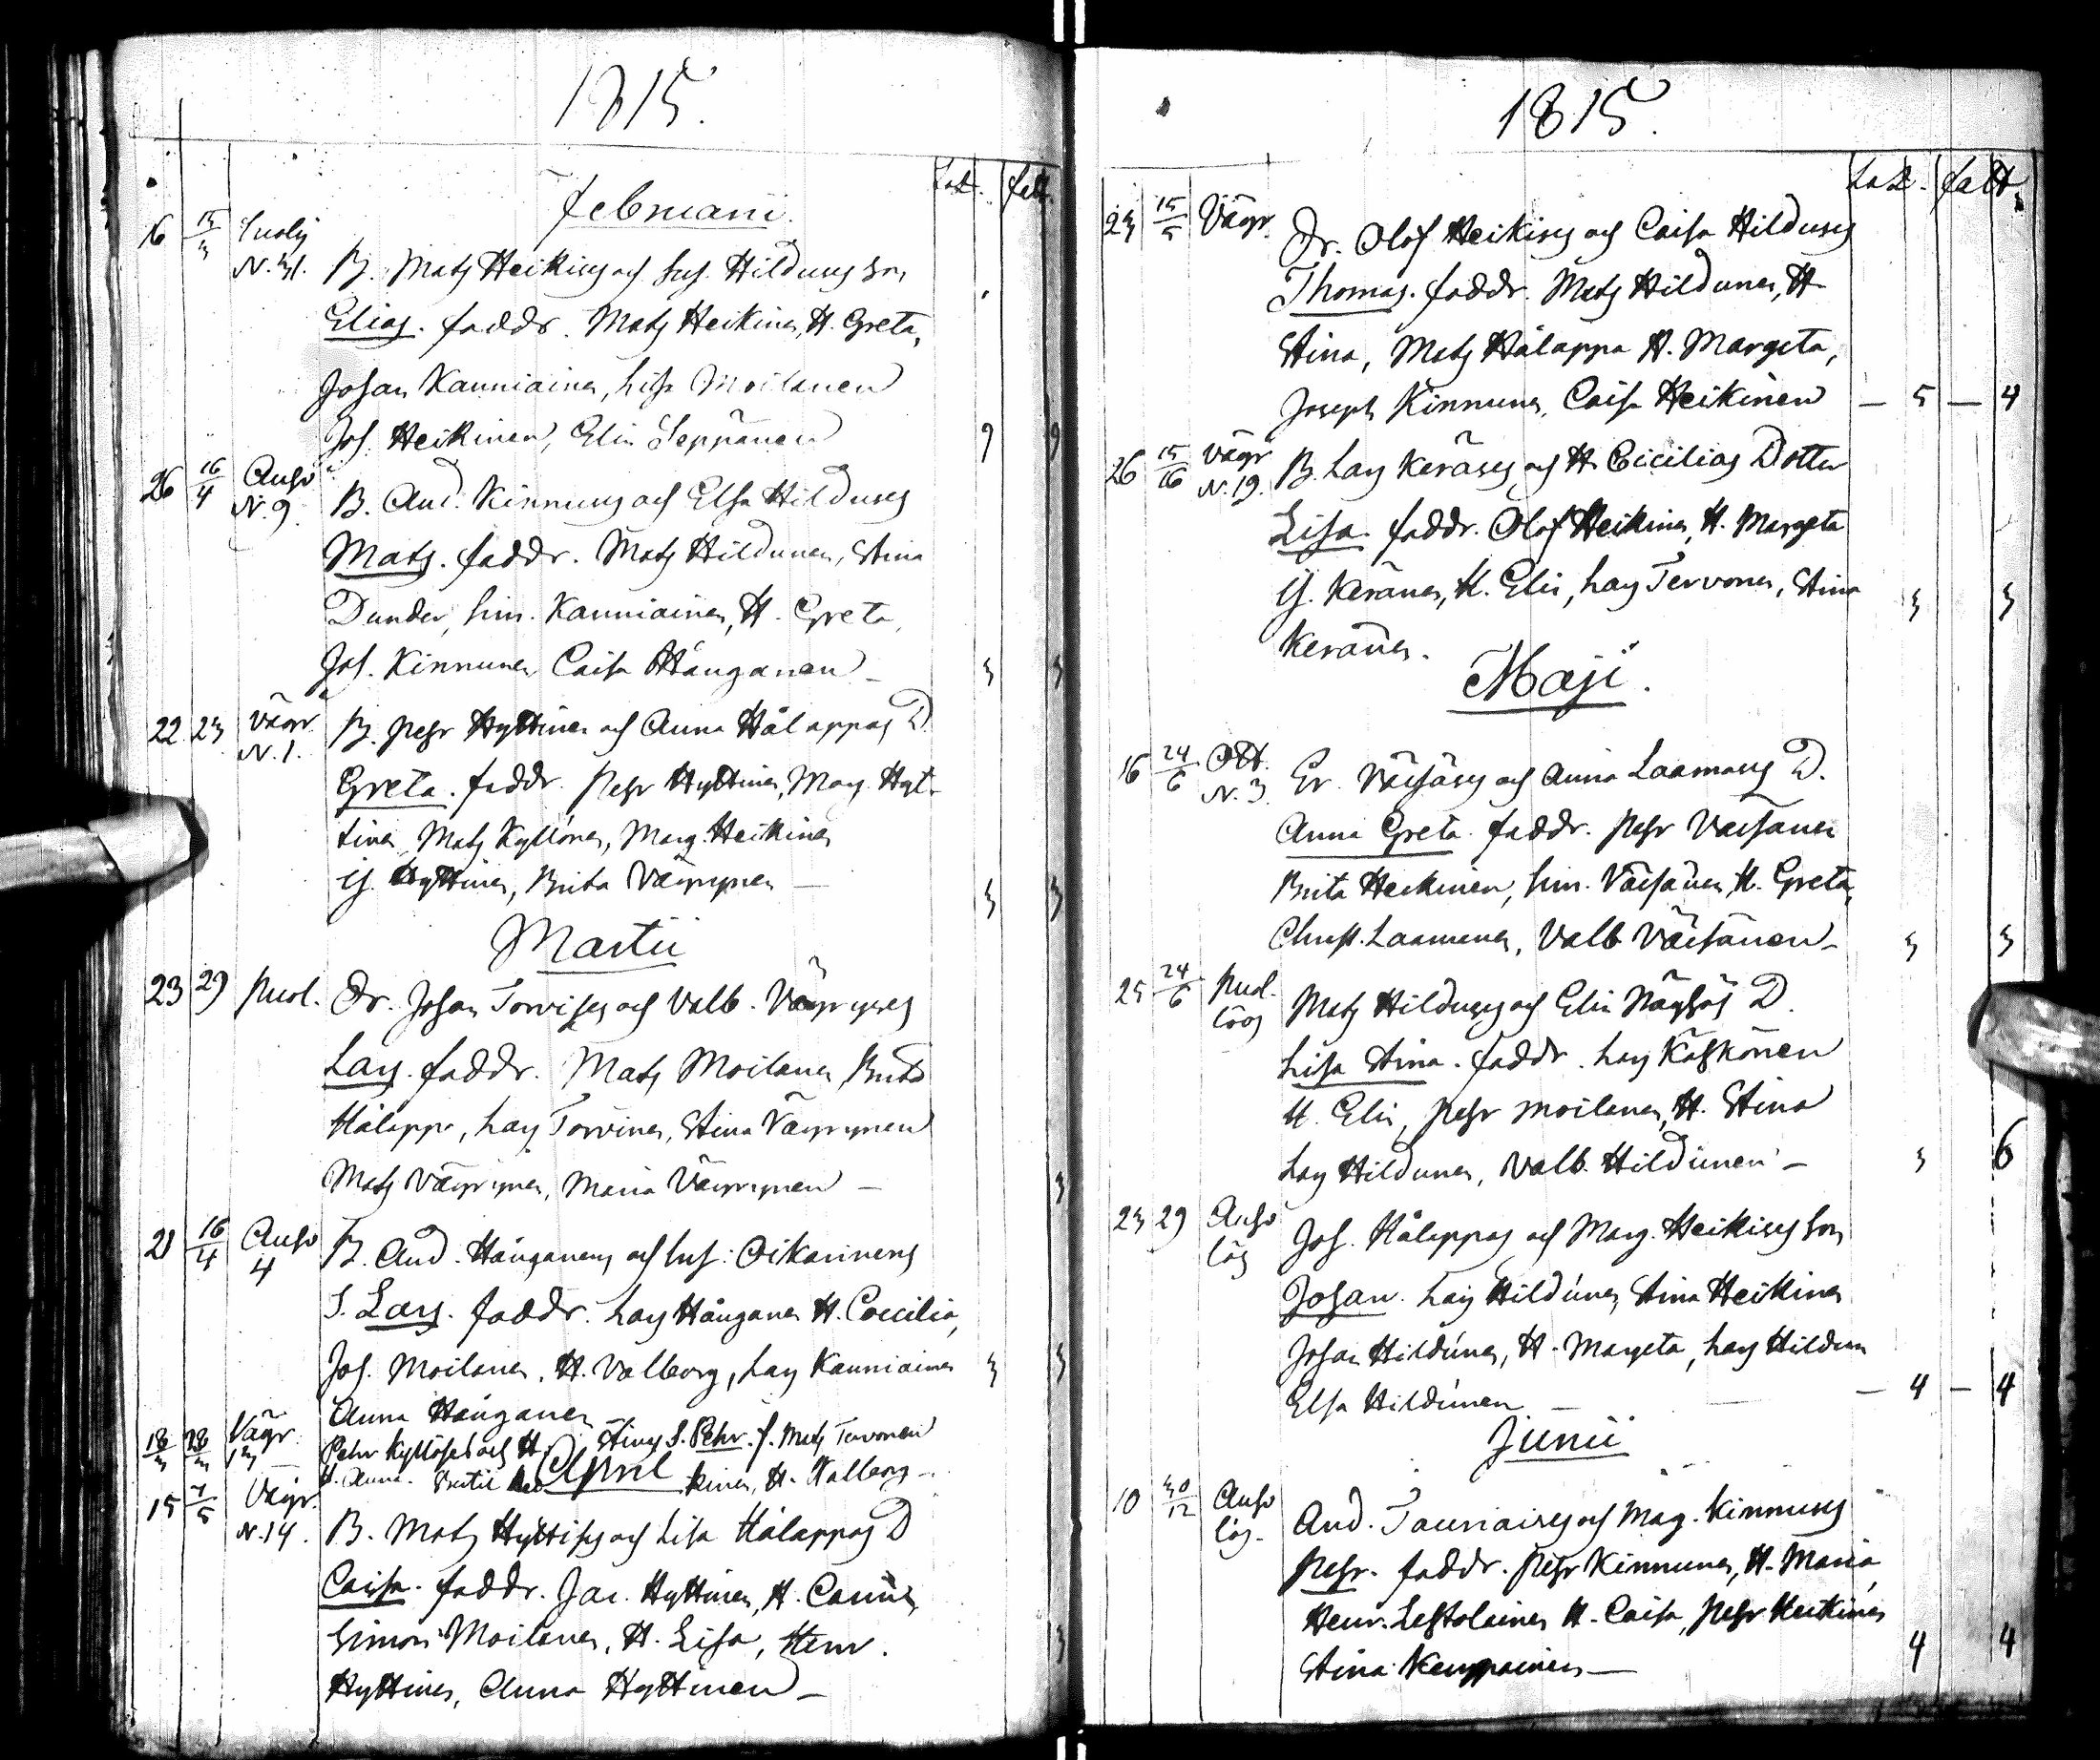 1815.
Februarii.
16 15/3 Suolij
N. 31. B. Mats Heikines och Sus. Hildunes Son
Elias. faddr. Mats Heikinen, H. Greta,
Johan Kauniainen, Lisa Moilanen
Joh. Heikinen, Elin Seppänen 9 9
26 16/4 Anso
N. 9. B. And. Kinnunes och Elsa Hildunes
Mats. faddr. Mats Hildunen, Stina
Dunder, Sim. Kauniainen, H. Greta,
Joh. Kinnunen, Caisa Hänganen – 3 3
22 23 Vägr.
N. 1. B. Pehr Hyttinen och Anna Hålappas D.
Greta. faddr. Pehr Hyttinen, Marg. Hyt-
tinen, Mats Kyllönen, Marg. Heikinen
G. Hyttinen, Brita Väyrynen – 3 3
Martii
23 29 Puol. Dr. Johan Torvises och Valb. Väyrynes
Lars. faddr. Mats Moilanen, Brita
Hålappa, Lars Torvinen, Stina Väyrynen
Mats Väyrynen, Maria Väyrynen – 3
21 16/4 Anso
4 B. And. Hänganens och Sus. Oikarinens
S. Lars. faddr. Lars Hänganen H. Coecilia,
Joh. Moilanen, H. Valborg, Lars Kauniainen 3 3
Anna Hänganen
18/3 28/3 Vägr.
13 Pehr Kyllöses och H. Stinas S. Pehr. f. Mats Tervonen
H. Anna. Bertil Heikinen, H. Valborg –
April
15 7/5 Vägr.
N. 14. B. Mats Hyttises och Lisa Hålappas D
Caisa. faddr. Jac. Hyttinen, H. Carin,
Simon Moilanen, H. Lisa, Henr. 3
Hyttinen, Anna Hyttinen –
1815.
23 15/5 Vägr. Dr. Olof Heikines och Caisa Hildunes
Thomas. faddr. Mats Hildunen, H.
Stina, Mats Hålappa H. Margeta,
Joseph Kinnunen, Caisa Heikinen – 5 – 4
26 15/16 Vägr
N. 19. B. Lars Keräses och H. Cicilias Dotter
Lisa. faddr. Olof Heikinen, H. Margeta
G. Keränen, H. Elin, Lars Tervonen, Stina 3 3
Keränen.
Maji.
16 24/6 Ott.
N. 3. Er. Väisäses och Anna Laamanes D.
Anna Greta. faddr. Pehr Väisänen
Brita Heikinen, Sim. Väisänen H. Greta,
Christ. Laamanen, Valb. Väisänen – 3 3
25 24/6 Puol.
lös Mats Hildunes och Elin Näyhäs D.
Lisa Stina. faddr. Lars Käskönen
H. Elin, Pehr Moilanen, H. Stina
Lars Hildunen, Valb. Hildunen – 3 6
23 29 Anso
lös Joh. Hålappas och Marg. Heikises Son
Johan. Lars Hildunen, Stina Heikinen
Johan Hildunen, H. Margeta, Lars Hildunen
Elsa Hildunen – – 4 – 4
Junii
10 30/12 Anso
lös. And. Tauriaises och Mag. Kinnunes
Pehr. faddr. Pehr Kinnunen, H. Maria
Henr. Lestolainen H. Caisa, Pehr Heikinen
Stina Kemppainen – 4 4